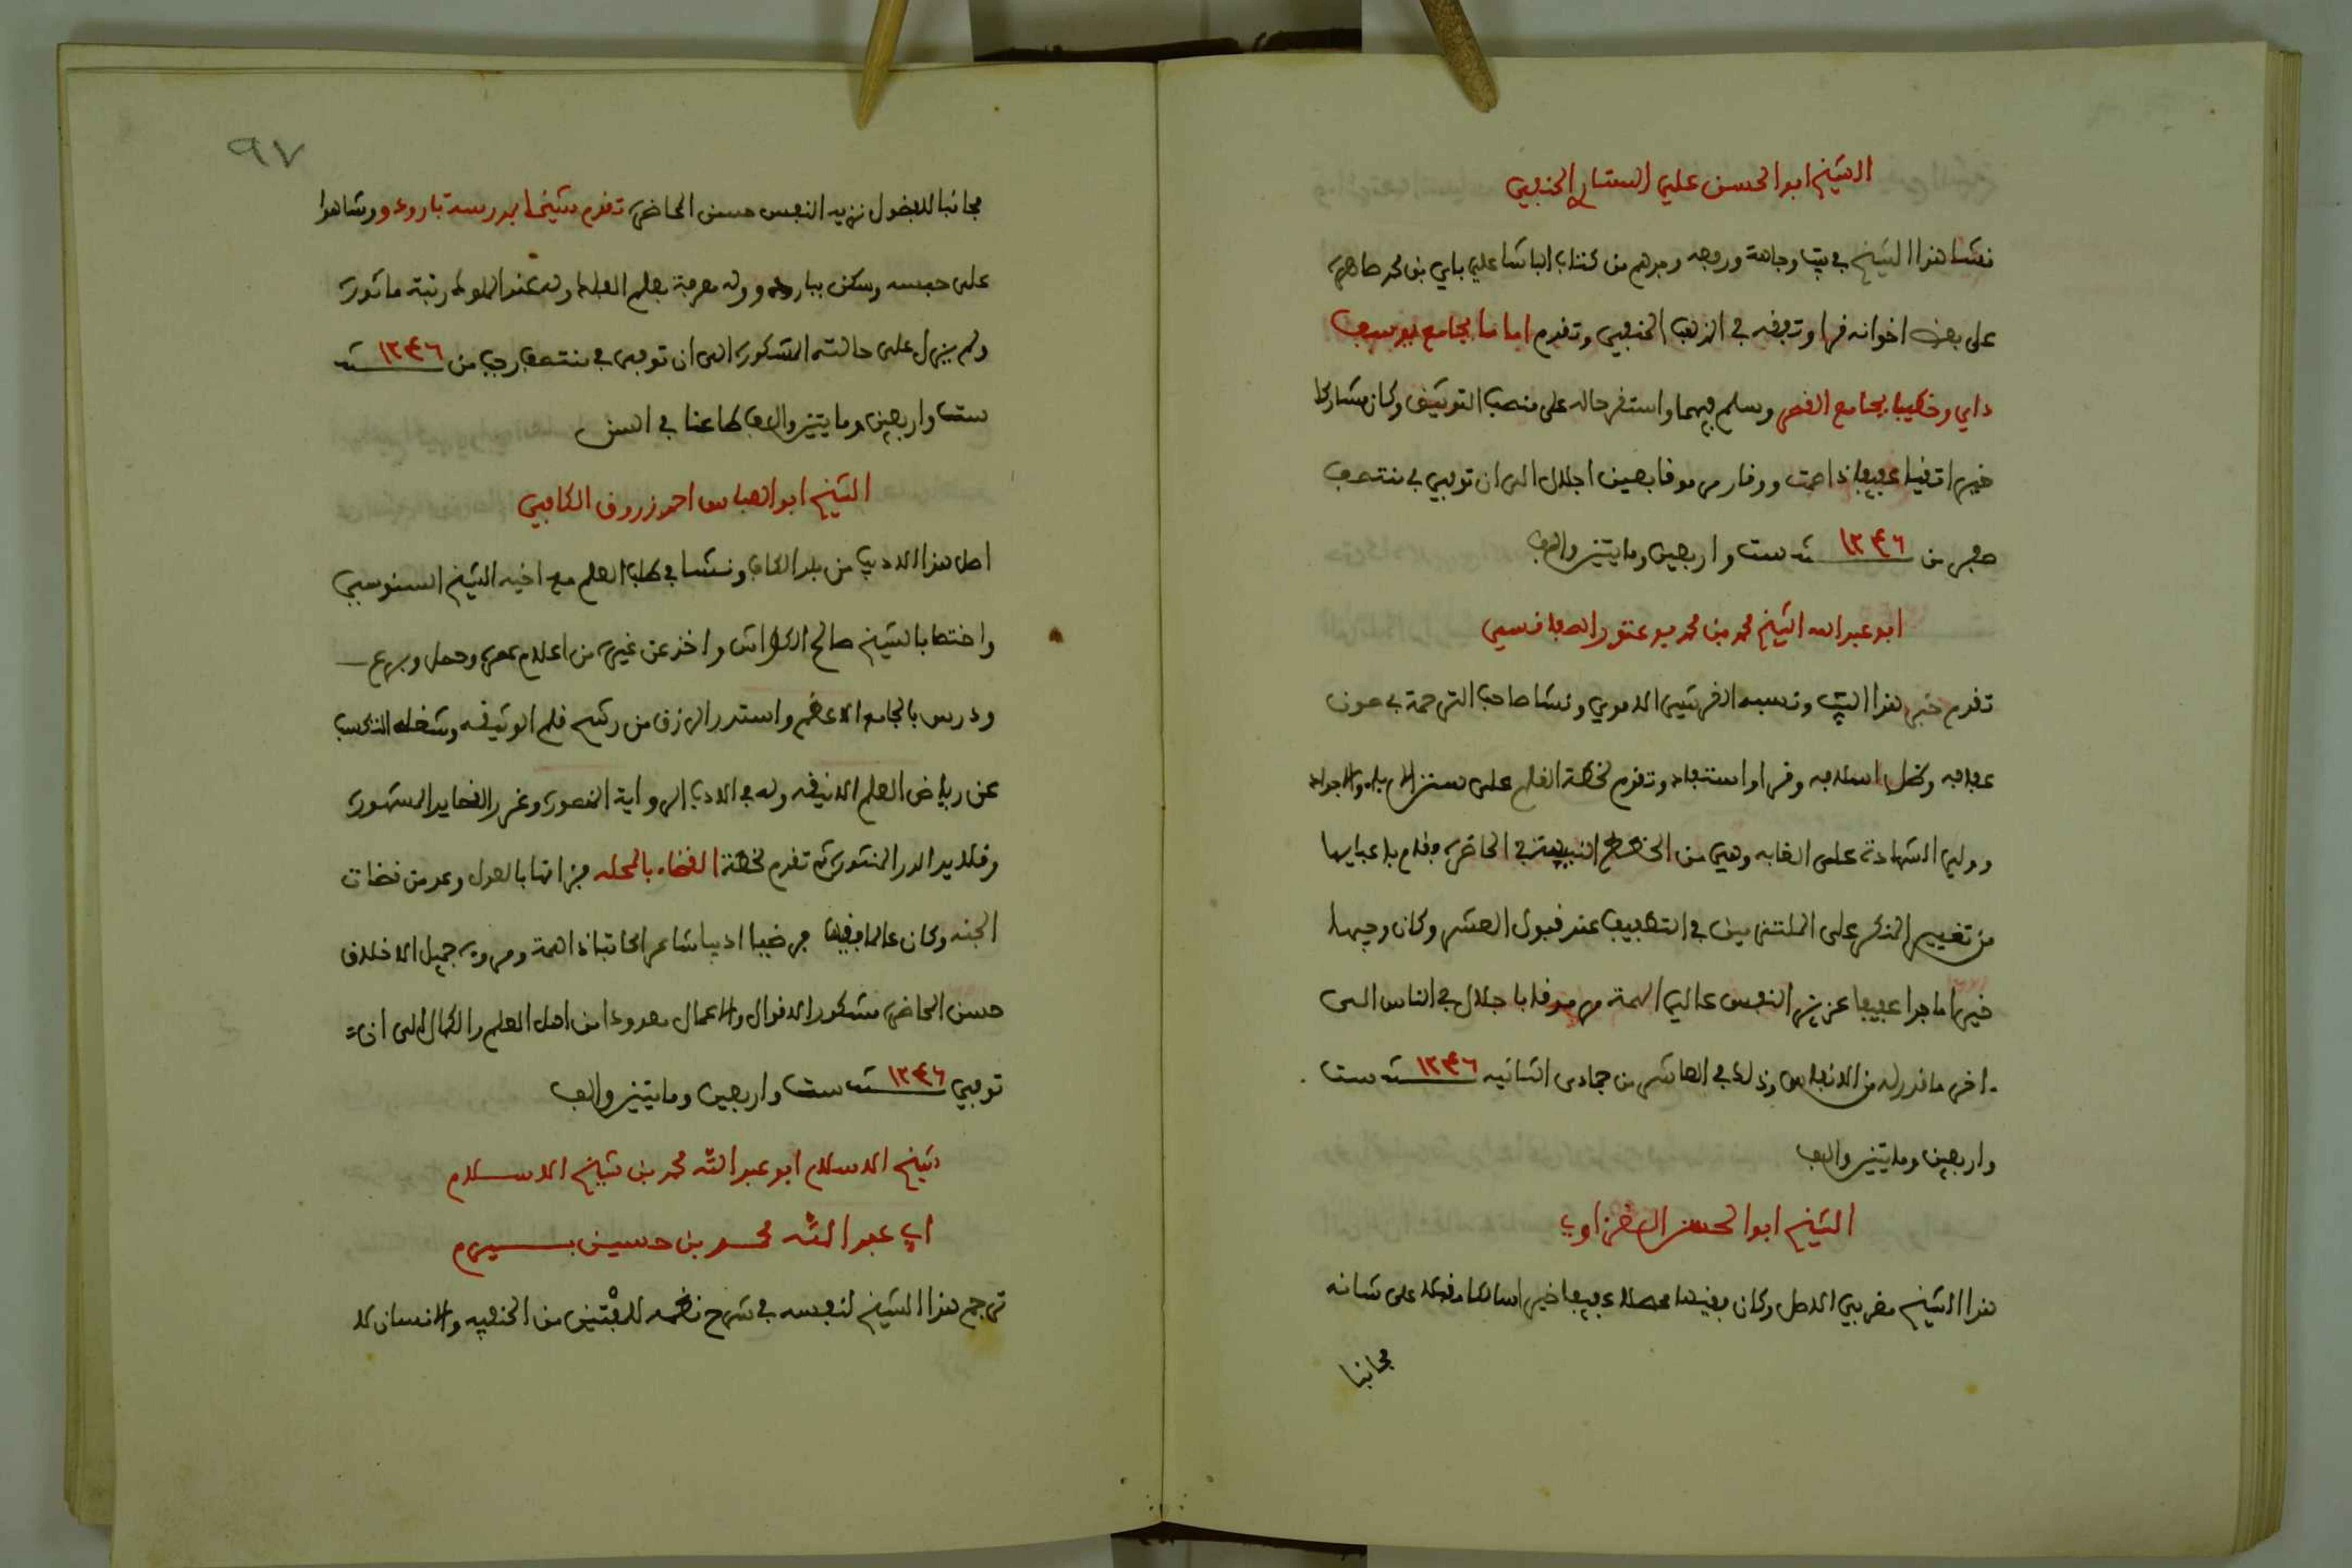 الشيخ ابو الحسن علي الستاري الحنفي
نشا هذا الشيخ في بيت وجاهة وروجه وجدهم من كتاب الباشا علي باي بن محمد
على بعض اخوانه قرا وتفقه في المذهب الحنفي وتقدم اماما بجامع يوسف
داي وخطيبا بجامع القصر وسلم فيهما واستقر حاله على منصب التوثيق وكان مشاركا
خيرا تقيا عفيفا ذا همت ووقار مرموقا بعين اجلال الى ان توفي في منتصف
صفر من سنة ١٢٤٦ ست واربعين ومايتين والف
ابو عبد الله الشيخ محمد بن محمد بو عتور الصفاقسي
تقدم خبر هذا البيت ونسبه القرشي الاموي ونشا صاحب الترجمة في صون
عفافه وظل اسلافه وقرا واستفاد وتقدم لخطة القلم على سنن الاباء والاجداد
وولي الشهادة على الغابه وهي من الخطط النبيهة في الحاضرة وقام باعبايها
من تغيير المنكر على الملتزمين في التطفيف عند قبول العشر وكان وجيها
خيرا ماجدا عفيفا عزيز النفس عالي الهمة مرموقا باجلال في الناس الى
اخر ما قدر له من الانفاس وذلك في العاشر من جمادى الثانيه سنة ١٢٤٦ ست
واربعين ومايتين والف
الشيخ ابو الحسن الغزاوي
هذا الشيخ مغربي الاصل وكان فقيها محصلا عفيفا خيرا سالكا مقبلا على شانه
مجانبا
٩٧
مجانبا للفضول نزيه النفس حسن المحاضرة تقدم شيخا بمدرسة باردو وشاهدا
على حبسه وسكن بباردو وله معرفة بعلم الفلك وله عند الملوك رتبة ماثورة
ولم يزل على حالته المشكورة الى ان توفي في منتصف رجب من سنة ١٢٤٦
ست واربعين ومايتين والف طاعنا في السن
الشيخ ابو العباس احمد زروق الكافي
اصل هذا الاديب من بلد الكاف ونشا في طلب العلم مع اخيه الشيخ السنوسي
واختصا بالشيخ صالح الكواش واخذ عن غيره من اعلام عصره وحصل وبرع
ودرس بالجامع الاعظم واستدر الرزق من ركية قلم الوثيقه وشغله التكسب
عن رياض العلم الانيقه وله في الادب الرواية المنصورة وغرر القصايد المشهورة
وقلايد الدر المنثورة ثم تقدم لخطة القضاء بالمحله فزانها بالعدل وعد من قضات
الجنه وكان عالما فقيها فرضيا اديبا شاعرا كاتبا ذا همة ومروة جميل الاخلاق
حسن المحاضرة مشكور الاقوال والاعمال معدودا من اهل العلم والكمال الى ان
توفي سنة ١٢٤٦ ست واربعين ومايتين والف
شيخ الاسلام ابو عبد الله محمد بن شيخ الاسلام
ابي عبد الله محمد بن حسين بيرم
ترجم هذا الشيخ لنفسه في شرح نظمه للمفتين من الحنفيه والانسان لا